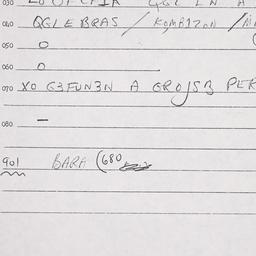 030
040 QGLEBRAS / KOMBIZON /
050 O
060 O
070 XO G3FUN3N A GROJSB PER
080 —
901 BARA (680